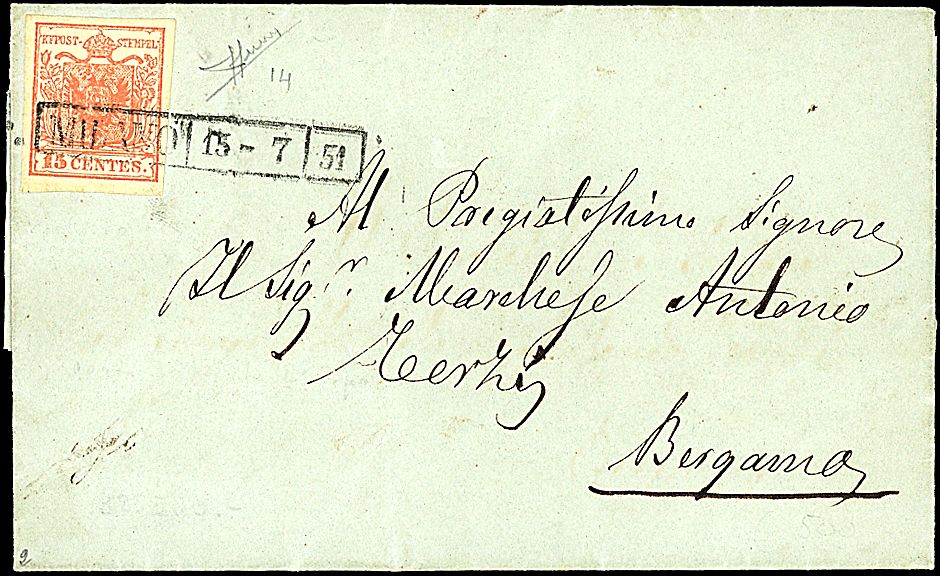 KKPOST-STEMPEL
15 CENTES.
MILANO 15-7 51
14
Al Pregiatissimo Signore
Il Sigr. Marchese Antonio
Terzi
Bergamo
500
2